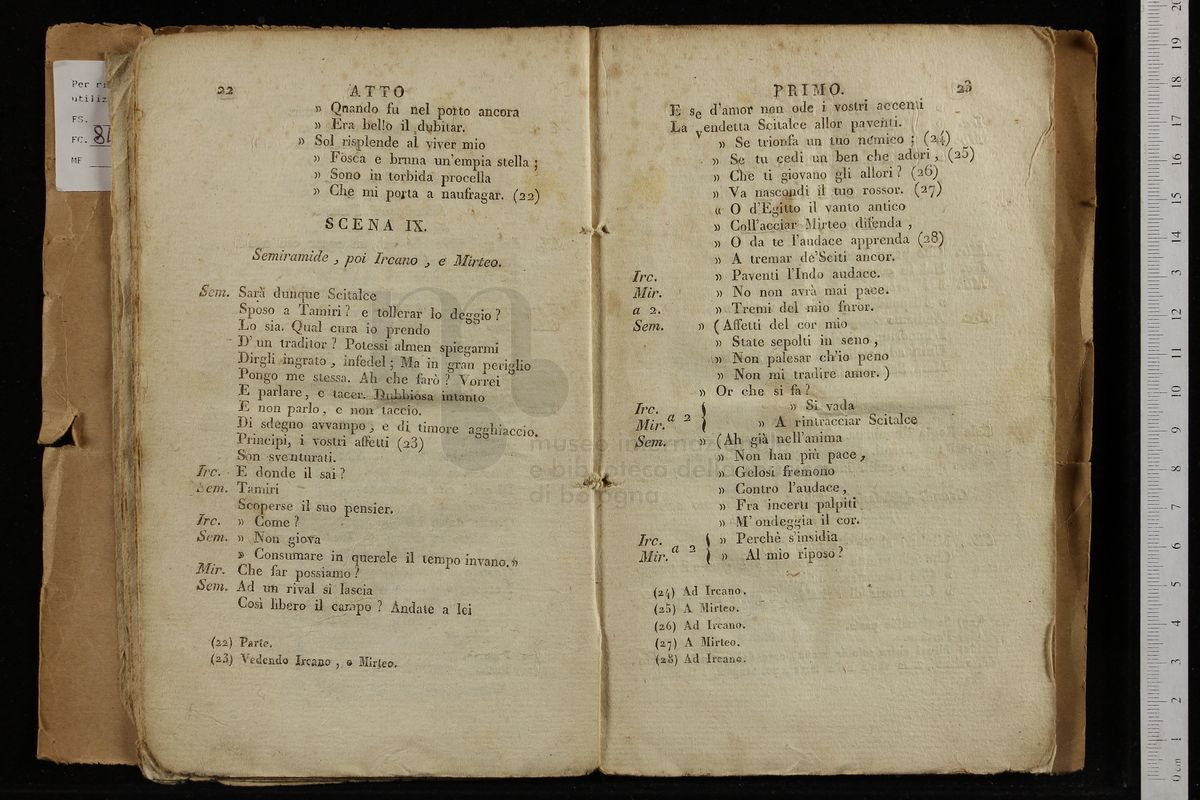 22 ATTO
» Quando fu nel porto ancora
» Era bello il dubitar.
» Sol risplende al viver mio
» Fosca e bruna un'empia stella ;
» Sono in torbida procella
» Che mi porta a naufragar. (22)
SCENA IX.
Semiramide , poi Ircano , e Mirteo.
Sem. Sarà dunque Scitalce
Sposo a Tamiri ? e tollerar lo deggio ?
Lo sia. Qual cura io prendo
D' un traditor ? Potessi almen spiegarmi
Dirgli ingrato , infedel ; Ma in gran periglio
Pongo me stessa. Ah che farò ? Vorrei
E parlare, e tacer. Dubbiosa intanto
E non parlo, e non taccio.
Di sdegno avvampo, e di timore agghiaccio.
Principi, i vostri affetti (23)
Son sventurati.
Irc. E donde il sai ?
Sem. Tamiri
Scoperse il suo pensier.
Irc. » Come ?
Sem. » Non giova
» Consumare in querele il tempo invano.»
Mir. Che far possiamo ?
Sem. Ad un rival si lascia
Così libero il campo ? Andate a lei
(22) Parte.
(23) Vedendo Ircano , e Mirteo.
PRIMO. 23
E se d'amor non ode i vostri accenti
La vendetta Scitalce allor paventi.
» Se trionfa un tuo nemico ; (24)
» Se tu cedi un ben che adori , (25)
» Che ti giovano gli allori ? (26)
» Va nascondi il tuo rossor. (27)
« O d'Egitto il vanto antico
» Coll'acciar Mirteo difenda ,
» O da te l'audace apprenda (28)
» A tremar de'Sciti ancor.
Irc. » Paventi l'Indo audace.
Mir. » No non avrà mai pace.
a 2. » Tremi del mio furor.
Sem. » ( Affetti del cor mio
» State sepolti in seno ,
» Non palesar ch'io peno
» Non mi tradire amor. )
» Or che si fa ?
Irc. Mir. a 2 } » Si vada
» A rintracciar Scitalce
Sem. » ( Ah già nell'anima
» Non han più pace ,
» Gelosi fremono
» Contro l'audace ,
» Fra incerti palpiti
» M' ondeggia il cor.
Irc. Mir. a 2 } » Perchè s'insidia
» Al mio riposo ?
(24) Ad Ircano.
(25) A Mirteo.
(26) Ad Ircano.
(27) A Mirteo.
(28) Ad Ircano.
Per ri
utiliz
FS.
FC.
MF
museo interna
e biblioteca dell
di bologna
0 cm 1 2 3 4 5 6 7 8 9 10 11 12 13 14 15 16 17 18 19 20